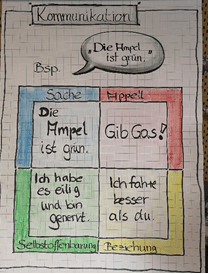 Kommunikation
„Die Ampel
ist grün."
Bsp.
Sache
Appell
Die
Ampel
ist grün.
Gib Gas!
Ich habe
es eilig
und bin
genervt.
Ich fahre
besser
als du.
Selbstoffenbarung
Beziehung